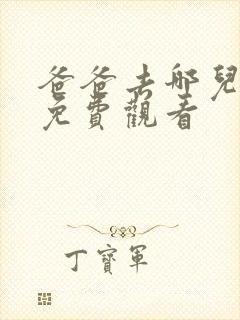 爸爸去哪兒
免費觀看
丁寶軍